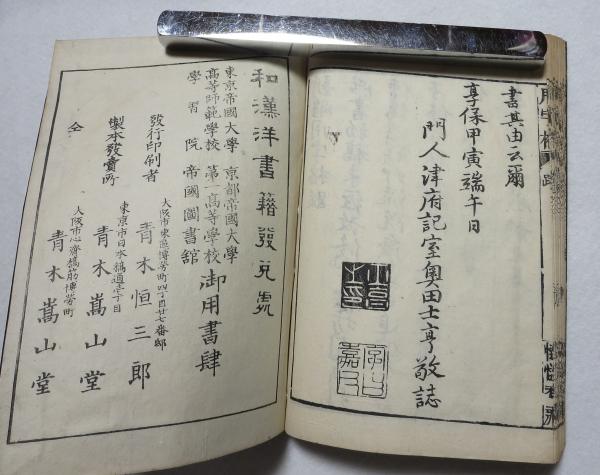 書其由云爾
享保甲寅端午日
門人津府記室奧田士亨敬誌
士亨之印
嘉甫
和漢洋書籍發兌處
東京帝國大學 京都帝國大學
高等師範學校 第一高等學校
學習院 帝國圖書館
御用書肆
大阪市東區博勞町四丁目廿七番邸
發行印刷者 青木恒三郎
東京市日本橋通壱丁目
製本發賣所 青木嵩山堂
大阪市心齋橋筋博勞町
仝 青木嵩山堂